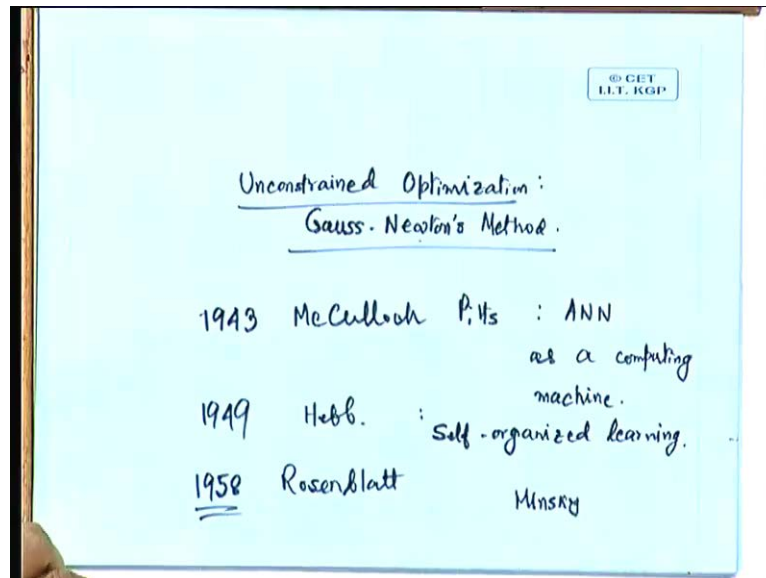 © CET
I.I.T. KGP
Unconstrained Optimization :
Gauss-Newton's Method.
1943 McCulloch Pitts : ANN
as a computing
machine.
1949 Hebb. :
Self-organized learning.
1958 Rosenblatt
Minsky